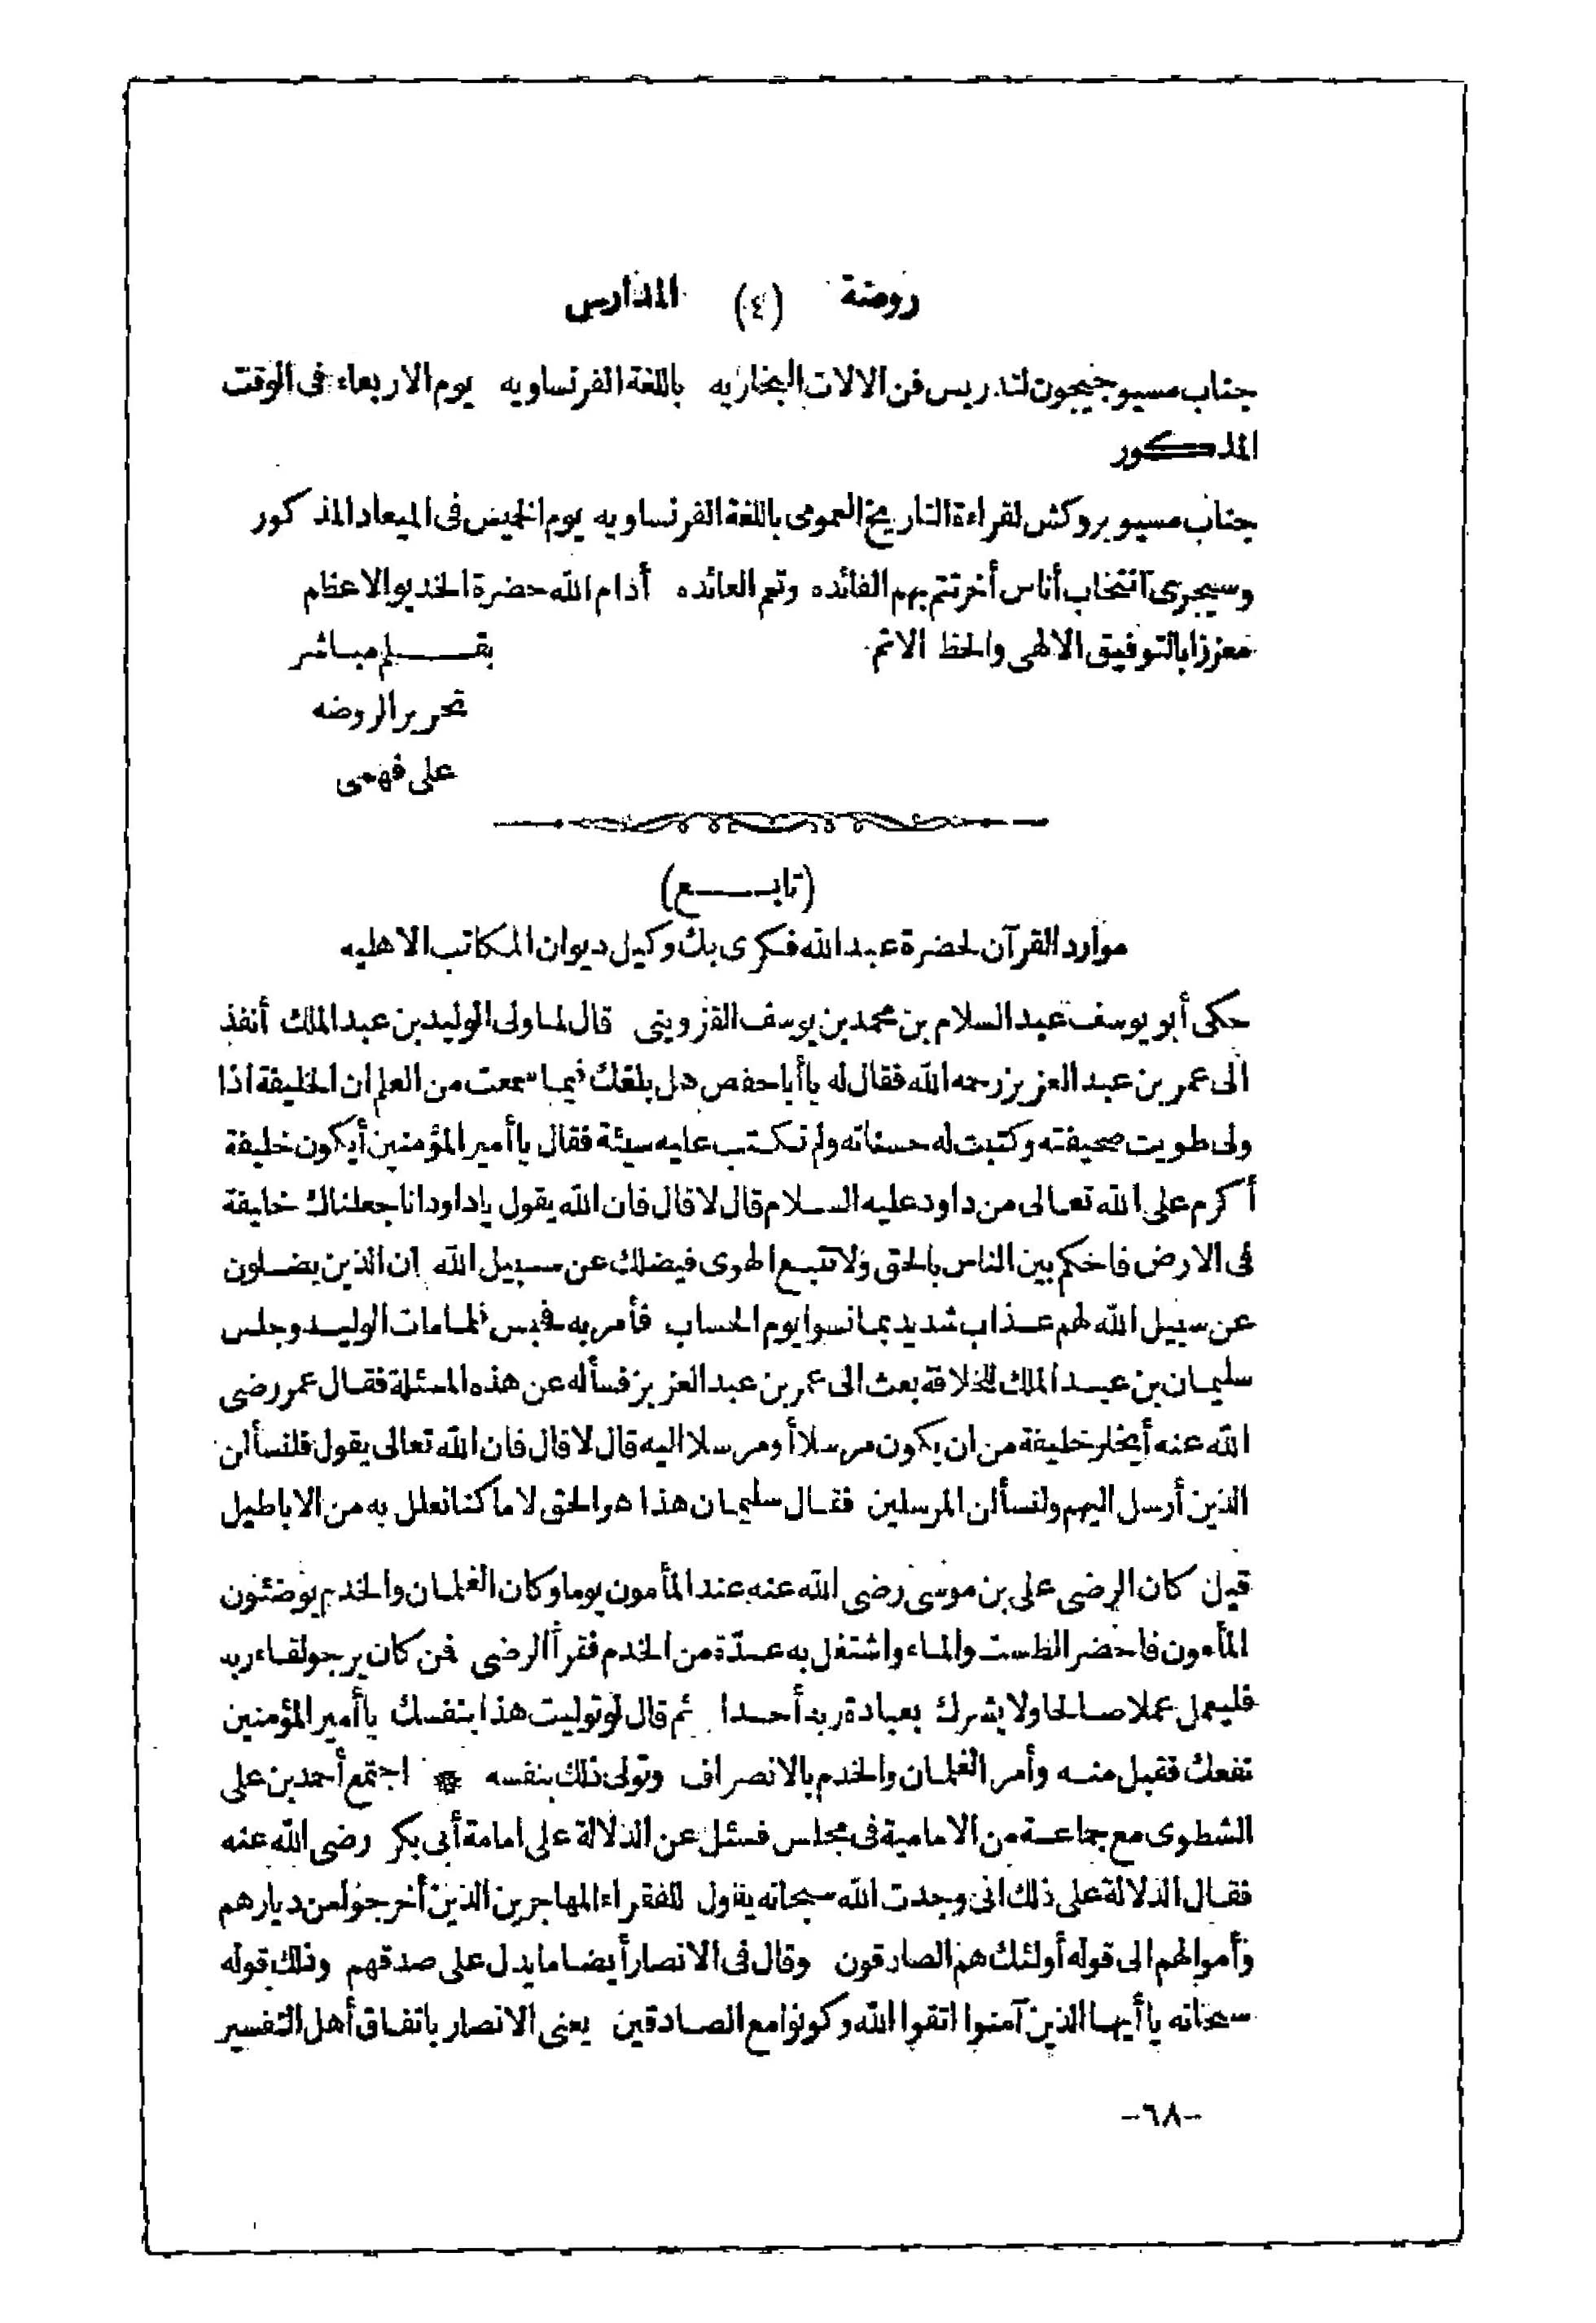 روضة (٤) المدارس
جناب مسيو جيجون لتدريس فن الالات البخاريه باللغة الفرنساويه يوم الاربعاء فى الوقت
المذكور
جناب مسيو بروكش لقراءة التاريخ العمومى باللغة الفرنساويه يوم الخميس فى الميعاد المذكور
وسيجرى انتخاب أناس أخر تتم بهم الفائده وتعم العائده أدام الله حضرة الخديو الاعظم
معززا بالتوفيق الالهى والحظ الاتم بقلم مباشر
تحرير الروضه
على فهمى
(تابع)
موارد القرآن لحضرة عبد الله فكرى بك وكيل ديوان المكاتب الاهليه
حكى أبو يوسف عبد السلام بن محمد بن يوسف القزوينى قال لما ولى الوليد بن عبد الملك أنفذ
الى عمر بن عبد العزيز رحمه الله فقال له يا أبا حفص هل بلغك فيما سمعت من العلم ان الخليفة اذا
ولى طويت صحيفته وكتبت له حسناته ولم تكتب عليه سيئة فقال يا أمير المؤمنين أيكون خليفة
أكرم على الله تعالى من داود عليه السلام قال لا قال فان الله يقول ياداود انا جعلناك خليفة
فى الارض فاحكم بين الناس بالحق ولا تتبع الهوى فيضلك عن سبيل الله ان الذين يضلون
عن سبيل الله لهم عذاب شديد بما نسوا يوم الحساب فأمر به فحبس فلما مات الوليد وجلس
سليمان بن عبد الملك للخلافة بعث الى عمر بن عبد العزيز فسأله عن هذه المسئلة فقال عمر رضى
الله عنه أيخلو خليفة من ان يكون مرسلا أو مرسلا اليه قال لا قال فان الله تعالى يقول فلنسألن
الذين أرسل اليهم ولنسألن المرسلين فقال سليمان هذا هو الحق لا ما كنا نعلل به من الاباطيل
قيل كان الرضى على بن موسى رضى الله عنه عند المأمون يوما وكان الغلمان والخدم يوضئون
المأمون فاحضر الطست والماء واشتغل به عدّة من الخدم فقرأ الرضى فمن كان يرجو لقاء ربه
فليعمل عملا صالحا ولا يشرك بعبادة ربه أحدا ثم قال لو توليت هذا بنفسك يا أمير المؤمنين
نفعك فقبل منه وأمر الغلمان والخدم بالانصراف وتولى ذلك بنفسه * اجتمع أحمد بن على
الشطوى مع جماعة من الامامية فى مجلس فسئل عن الدلالة على امامة أبى بكر رضى الله عنه
فقال الدلالة على ذلك انى وجدت الله سبحانه يقول للفقراء المهاجرين الذين أخرجوا من ديارهم
وأموالهم الى قوله أولئك هم الصادقون وقال فى الانصار أيضا ما يدل على صدقهم وذلك قوله
سبحانه يا أيها الذين آمنوا اتقوا الله وكونوا مع الصادقين يعنى الانصار باتفاق أهل التفسير
-٦٨-